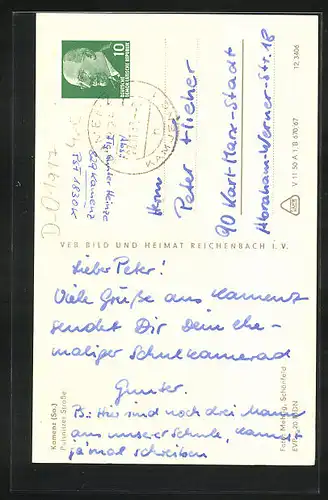 10
DEUTSCHE
DEMOKRATISCHE REPUBLIK
KAMENZ
Abs:
Günter Heinze
829 Kamenz
PSF 1830 K
D-01917
Herrn
Peter
90 Karl-Marx-Stadt
Abraham-Werner-Str. 18
V 11 50 A 1/B 670/67
12 3406
VEB BILD UND HEIMAT REICHENBACH I. V.
Lieber Peter!
Viele Grüße aus Kamenz
sendet Dir Dein ehe-
maliger Schulkamerad
Gunter.
PS: Hier sind noch drei Mann
aus unserer Schule, kannst
ja mal schreiben
Kamenz (Sa.)
Pulsnitzer Straße
Schönfeld
EVP 0,20 MDN